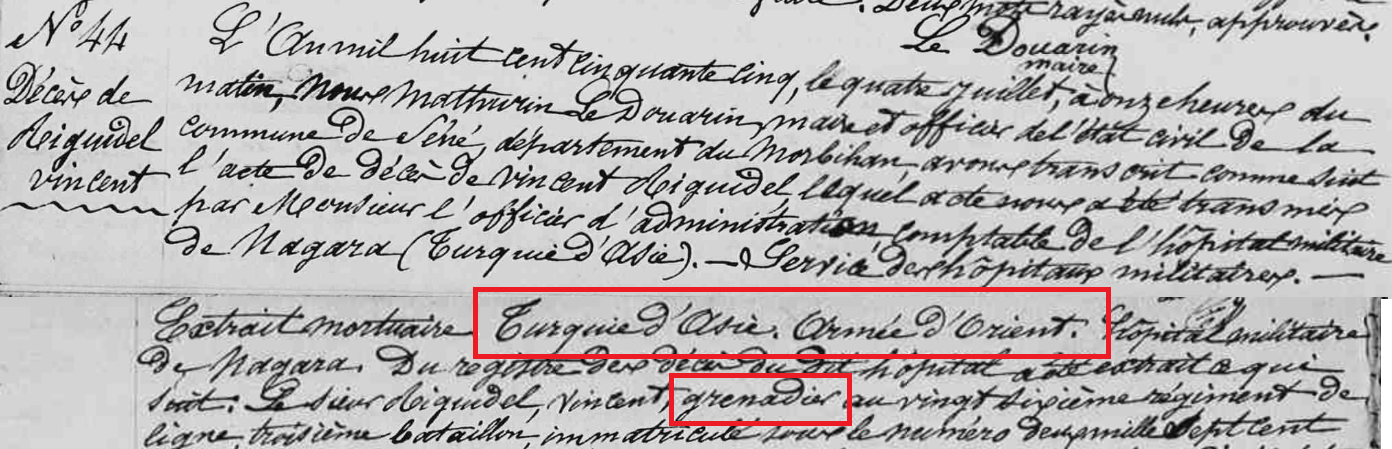 Deux mots rayés nuls, approuvés.
Le Douarin
maire
N° 44
Décès de
Riguidel
vincent
L'An mil huit cent cinquante cinq, le quatre juillet, à onze heures du
matin, Nous Mathurin Le Douarin, maire et officier de l'état civil de la
commune de Séné, département du Morbihan, avons transcrit comme suit
l'acte de décès de vincent Riguidel lequel acte nous a été transmis
par Monsieur l'officier d'administration, comptable de l'hôpital militaire
de Nagara (Turquie d'Asie). — Service des hôpitaux militaires. —
Extrait mortuaire Turquie d'Asie. Armée d'Orient. Hôpital militaire
de Nagara. Du registre des décès du dit hôpital a été extrait ce qui
suit: Le sieur Riguidel, vincent, grenadier au vingt sixième régiment de
ligne, troisième bataillon, immatriculé sous le numéro deux mille sept cent